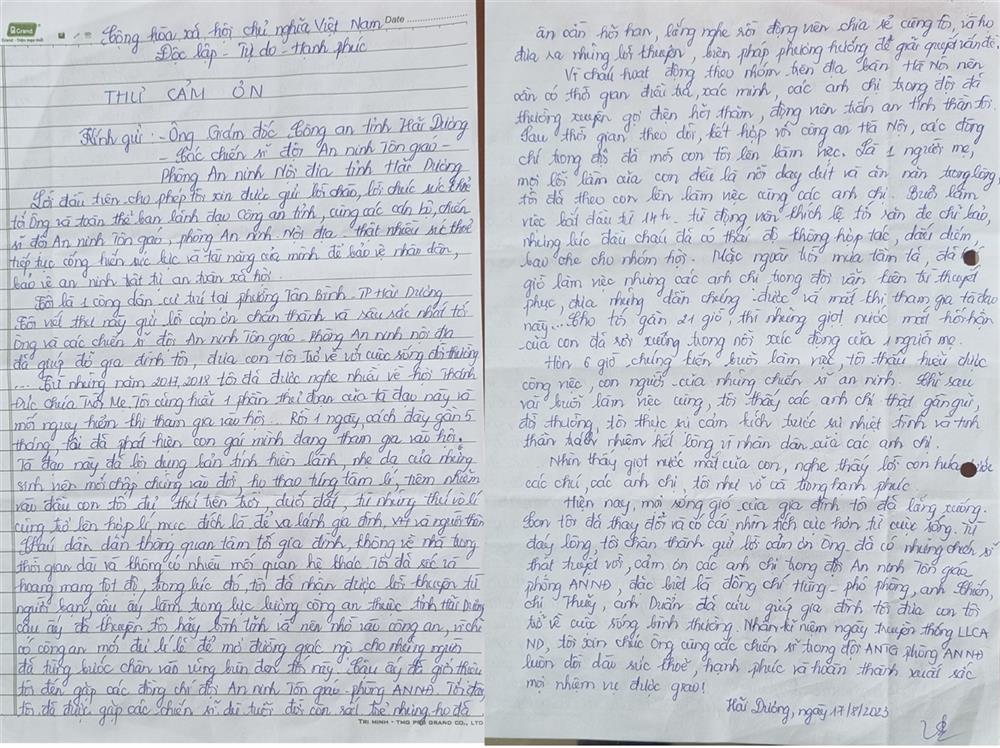 Grand
Date
Cộng hòa xã hội chủ nghĩa Việt Nam
Độc lập - Tự do - Hạnh phúc
THƯ CẢM ƠN
Kính gửi: - Ông Giám đốc Công an tỉnh Hải Dương
- Các chiến sĩ đội An ninh Tôn giáo -
Phòng An ninh Nội địa tỉnh Hải Dương
Lời đầu tiên cho phép tôi xin được gửi lời chào, lời chúc sức khỏe
tới Ông và toàn thể ban lãnh đạo Công an tỉnh, cùng các cán bộ, chiến
sĩ đội An ninh Tôn giáo, phòng An ninh Nội địa thật nhiều sức khỏe
tiếp tục cống hiến sức lực và tài năng của mình để bảo vệ nhân dân,
bảo vệ an ninh trật tự an toàn xã hội.
Tôi là 1 công dân cư trú tại phường Tân Bình - TP Hải Dương
Tôi viết thư này gửi lời cảm ơn chân thành và sâu sắc nhất tới
Ông và các chiến sĩ đội An ninh Tôn giáo - Phòng An ninh nội địa
đã giúp đỡ gia đình tôi, đưa con tôi trở về với cuộc sống đời thường
... Từ những năm 2017, 2018 tôi đã được nghe nhiều về hội Thánh
Đức Chúa Trời Mẹ. Tôi cũng hiểu 1 phần thủ đoạn của tà đạo này và
mối nguy hiểm khi tham gia vào hội... Rồi 1 ngày, cách đây gần 5
tháng, tôi đã phát hiện con gái mình đang tham gia vào hội.
Tà đạo này đã lợi dụng bản tính hiền lành, nhẹ dạ của những
sinh viên mới chập chững vào đời, họ thao túng tâm lí, tiêm nhiễm
vào đầu con tôi đủ thứ trên trời, dưới đất, từ những thứ vô lí
cũng trở lên hợp lí mục đích là để xa lánh gia đình, và người thân
Cháu dần dần không quan tâm tới gia đình, không về nhà trong
thời gian dài và không có nhiều mối quan hệ khác. Tôi đã sốc và
hoang mang tột độ, trong lúc đó, tôi đã nhận được lời khuyên từ
người bạn, cậu ấy làm trong lực lượng công an thuộc tỉnh Hải Dương
cậu ấy đã khuyên tôi hãy bình tĩnh và nên nhờ vào công an, vì chỉ
có công an mới đủ lí lẽ để mở đường giác ngộ cho những người
đã từng bước chân vào vũng bùn đen tối này. Cậu ấy đã giới thiệu
tôi đến gặp các đồng chí đội An ninh Tôn giáo - phòng ANNĐ. Tới đây
tôi đã được gặp các chiến sĩ dù tuổi đời còn rất trẻ nhưng họ đã
TRI MINH - TMG PTE GRAND CO., LTD
ân cần hỏi han, lắng nghe rồi động viên chia sẻ cùng tôi, và họ
đưa ra những lời khuyên, biện pháp phương hướng để giải quyết vấn đề.
Vì cháu hoạt động theo nhóm trên địa bàn Hà Nội nên
cần có thời gian điều tra, xác minh, các anh chị trong đội đã
thường xuyên gọi điện hỏi thăm, động viên trấn an tinh thần tôi.
Sau thời gian theo dõi, kết hợp với công an Hà Nội, các đồng
chí trong đội đã mời con tôi lên làm việc. Là 1 người mẹ,
mọi lỗi lầm của con đều là nỗi day dứt và ân hận trong lòng
tôi đã theo con lên làm việc cùng các anh chị. Buổi làm
việc bắt đầu từ 14h - từ động viên khích lệ tới răn đe chỉ bảo,
nhưng lúc đầu cháu đã có thái độ không hợp tác, dấu diếm,
bao che cho nhóm hội. Mặc ngoài trời mưa tầm tã, đã
giờ làm việc nhưng các anh chị trong đội vẫn kiên trì thuyết
phục, đưa những dẫn chứng được và mất khi tham gia tà đạo
này... Cho tới gần 21 giờ, thì những giọt nước mắt hối hận
của con đã rơi xuống trong nỗi xúc động của 1 người mẹ.
Hơn 6 giờ chứng kiến buổi làm việc, tôi thấu hiểu được
công việc, con người của những chiến sĩ an ninh. Khi sau
và buổi làm việc cùng, tôi thấy các anh chị thật gần gũi,
đời thường, tôi thực sự cảm kích trước sự nhiệt tình và tinh
thần trách nhiệm hết lòng vì nhân dân của các anh chị.
Nhìn thấy giọt nước mắt của con, nghe thấy lời con hứa trước
các chú, các anh chị, tôi như vỡ òa trong hạnh phúc.
Hiện nay, mọi sóng gió của gia đình tôi đã lắng xuống.
Con tôi đã thay đổi và có cái nhìn tích cực hơn từ cuộc sống. Từ
đáy lòng, tôi chân thành gửi lời cảm ơn Ông - đã có những chiến sĩ
thật tuyệt vời, cảm ơn các anh chị trong đội An ninh Tôn giáo
phòng ANNĐ, đặc biệt là đồng chí Hùng - phó phòng, anh Chiến,
chị Thủy, anh Duẩn đã cứu giúp gia đình tôi đưa con tôi
trở về cuộc sống bình thường. Nhân kỉ niệm ngày truyền thống LLCA
ND, tôi xin chúc Ông cùng các chiến sĩ trong đội ANTG phòng ANNĐ
luôn dồi dào sức khỏe, hạnh phúc và hoàn thành xuất sắc
mọi nhiệm vụ được giao!
Hải Dương, ngày 17/8/2023